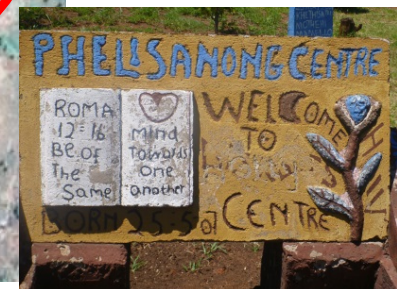 PHELISANONG CENTRE
ROMA
12=16
Be of
The
Same
mind
Towards
one
another
WELCOME
TO
CENTRE
BORN 25-5-01